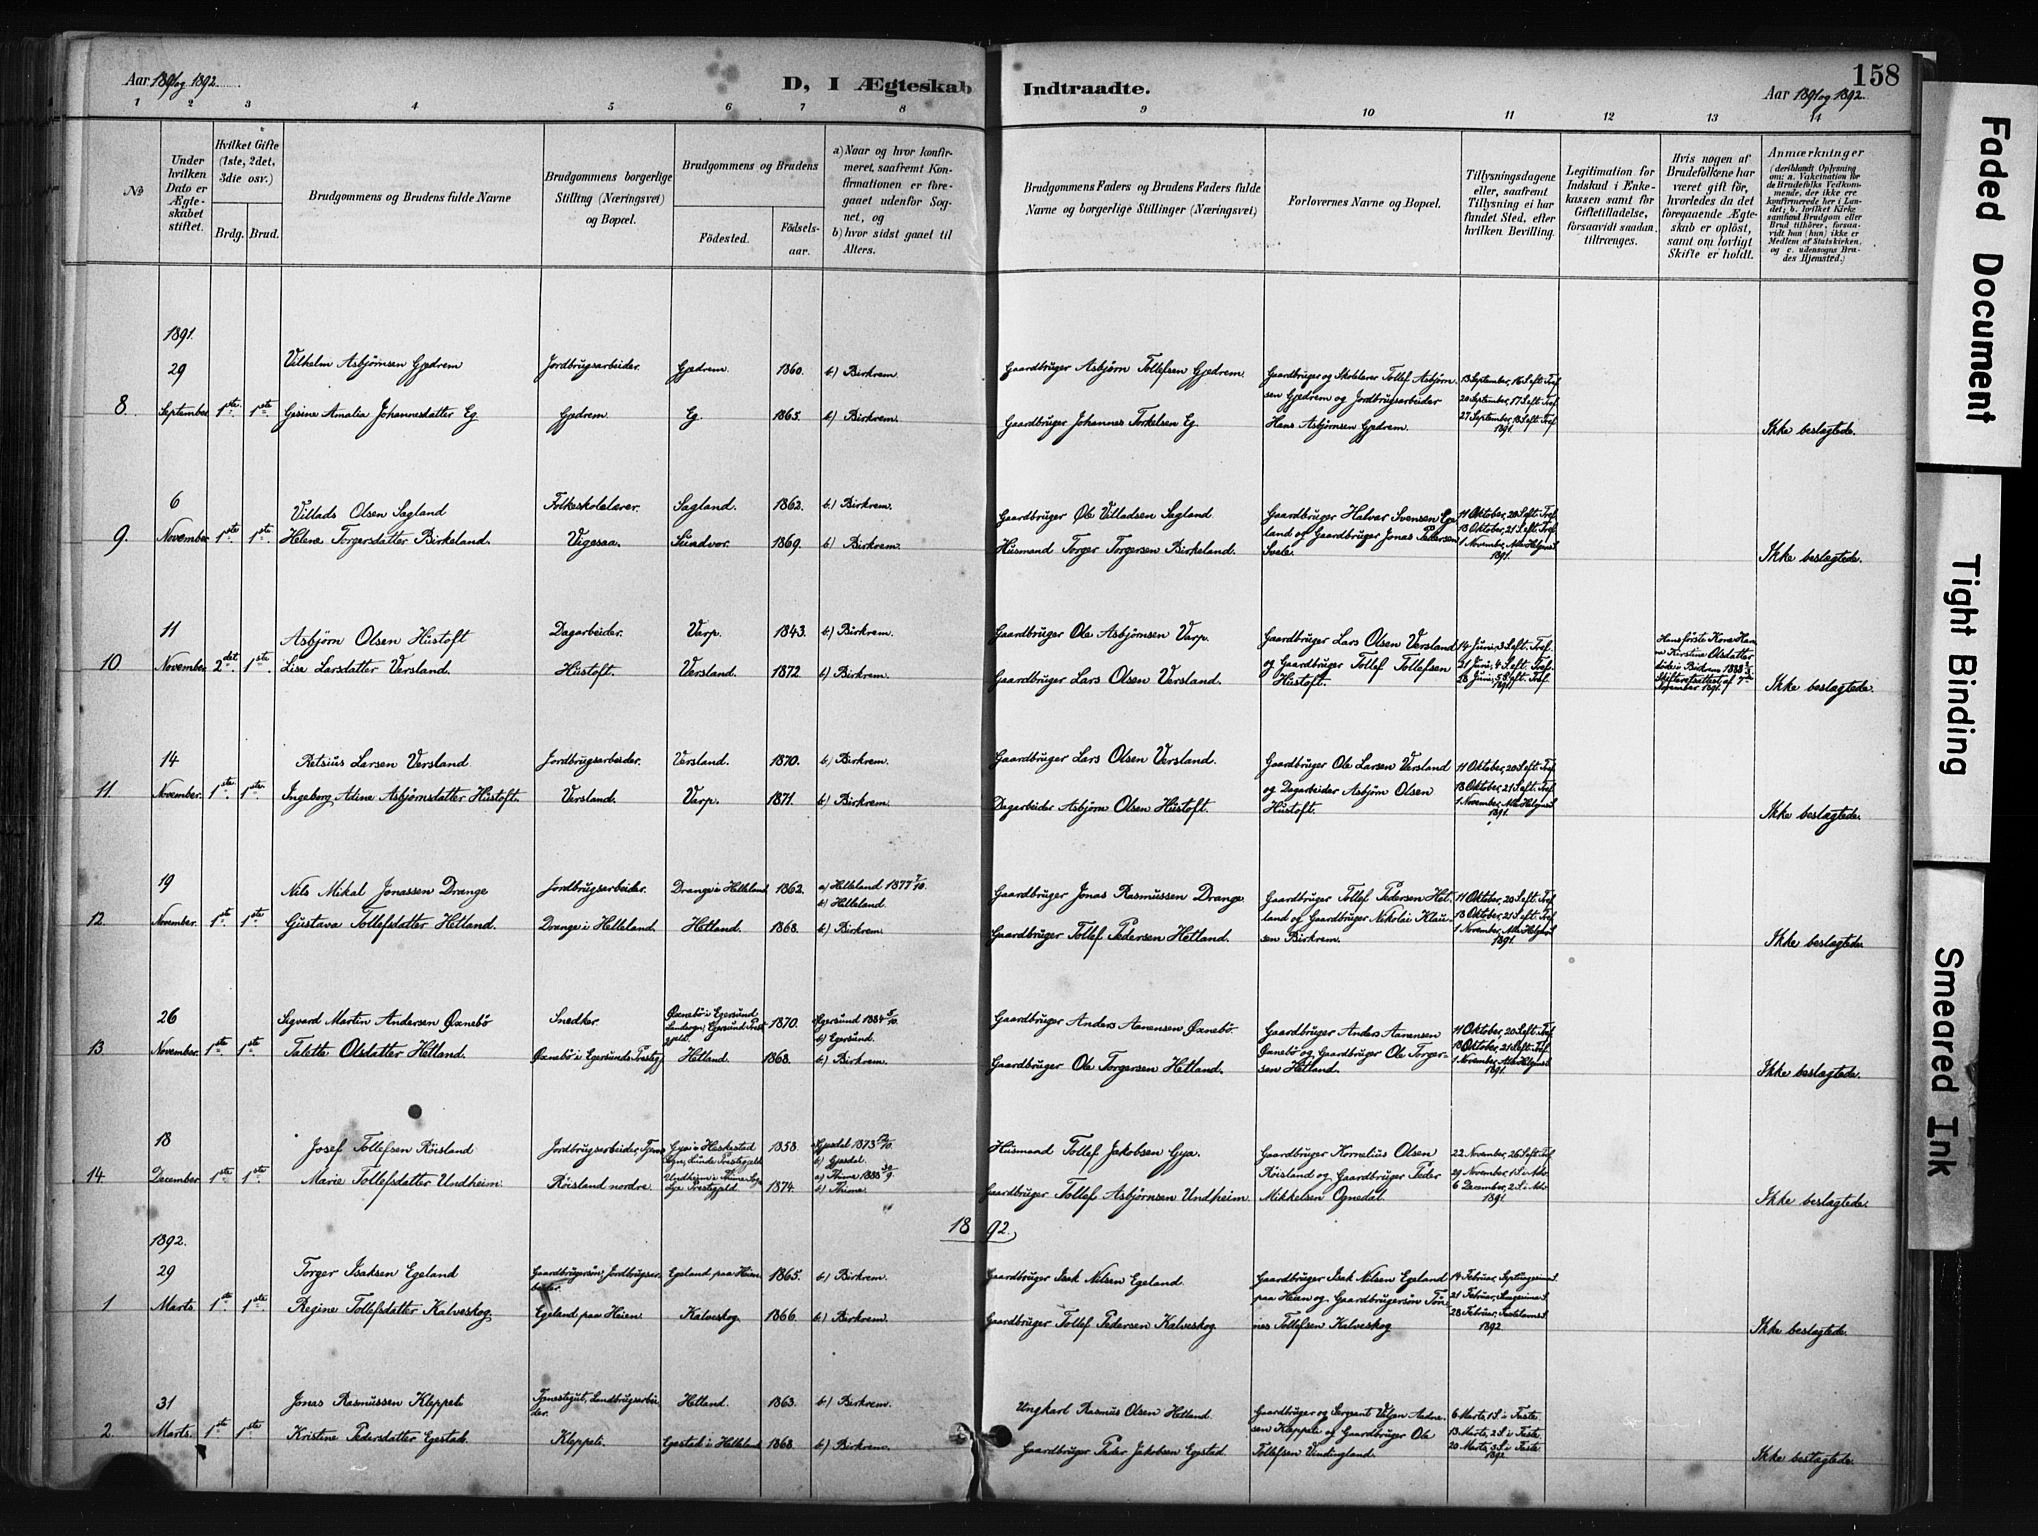 158
Aar 1891 og 1892.
D, I Ægteskab Indtraadte.
Aar 1891 og 1892.
1 2 3 4 5 6 7 8 9 10 11 12 13 14
No
Under hvilken Dato er Ægteskabet stiftet.
Hvilket Gifte (1ste, 2det, 3die osv.)
Brdg. Brud.
Brudgommens og Brudens fulde Navne
Brudgommens borgerlige Stilling (Næringsvei) og Bopæl.
Brudgommens og Brudens
Födested. Födsels-aar.
a) Naar og hvor konfirmeret, saafremt Konfirmationen er foregaaet udenfor Sognet, og
b) hvor sidst gaaet til Alters.
Brudgommens Faders og Brudens Faders fulde Navne og borgerlige Stillinger (Næringsvei)
Forlovernes Navne og Bopæl.
Tillysningsdagene eller, saafremt Tillysning ei har fundet Sted, efter hvilken Bevilling.
Legitimation for Indskud i Enkekassen samt for Giftetilladelse, forsaavidt saadan tiltrænges.
Hvis nogen af Brudefolkene har været gift för, hvorledes da det foregaaende Ægteskab er oplöst, samt om lovligt Skifte er holdt.
Anmærkninger
(deriblandt Oplysning om: a. Vakcination for de Brudefolks Vedkommende, der ikke ere konfirmerede her i Landet; b. hvilket Kirkesamfund Brudgom eller Brud tilhörer, forsaavidt han (hun) ikke er Medlem af Statskirken, og c. udensogns Brudes Hjemsted.)
1891.
29 Vilhelm Asbjörnsen Gjedrem Jordbrugsarbeider. Gjedrem. 1860. b) Birkrem. Gaardbruger Asbjörn Tollefsen Gjedrem. Gaardbruger og Skolelærer Tollef Asbjörn- 13 September, 16 S. eft. Tref.
sen Gjedrem og Jordbrugsarbeider 20 September, 17 S. eft. Tref.
8. September 1ste 1ste Gesine Amalia Johannesdatter Eg Gjedrem. Eg. 1865. b) Birkrem. Gaardbruger Johannes Torkelsen Eg. Hans Asbjörnsen Gjedrem. 27 September, 18 S. eft. Tref. 1891. Ikke beslægtede.
6 Villads Olsen Sagland Folkeskolelærer. Sagland. 1862. b) Birkrem. Gaardbruger Ole Villadsen Sagland. Gaardbruger Halvar Svensen Ege- 11 Oktober, 20 S. eft. Tref.
9. November 1ste 1ste Helene Torgersdatter Birkeland. Vigesaa. Sundvor. 1869. b) Birkrem. Husmand Torger Torgersen Birkeland. land og Gaardbruger Jonas Pedersen 18 Oktober, 21 S. eft. Tref.
Svele. 1 November, Alle Helgens S. 1891. Ikke beslægtede.
11 Asbjörn Olsen Hustoft Dagarbeider. Varp. 1843. b) Birkrem. Gaardbruger Ole Asbjörnsen Varp. Gaardbruger Lars Olsen Versland 14 Juni, 3 S. eft. Tref.
10 November 2det 1ste Lise Larsdatter Versland. Hustoft. Versland. 1872 b) Birkrem. Gaardbruger Lars Olsen Versland. og Gaardbruger Tollef Tollefsen 21 Juni, 4 S. eft. Tref.
Hustoft. 28 Juni, 5 S. eft. Tref. 1891. Hans förste Kone Hanne Kirstine Olsdatter döde i Birkrem 1888 Skifteretsattest af 7de November 1891. Ikke beslægtede.
14 Retsius Larsen Versland Jordbrugsarbeider. Versland. 1870. b) Birkrem. Gaardbruger Lars Olsen Versland. Gaardbruger Ole Larsen Versland 11 Oktober, 20 S. eft. Tref.
11. November. 1ste 1ste Ingeborg Adine Asbjörnsdatter Hustoft. Versland. Varp. 1871. b) Birkrem. Dagarbeider Asbjörn Olsen Hustoft. og Dagarbeider Asbjörn Olsen 18 Oktober, 21 S. eft. Tref.
Hustoft. 1 November, Alle Helgens S. 1891. Ikke beslægtede.
19 Nils Mikal Jonassen Drange Jordbrugsarbeider. Drange i Helleland 1862. a) Helleland 1877 7/10. b) Helleland. Gaardbruger Jonas Rasmussen Drange. Gaardbruger Tollef Pedersen Het- 11 Oktober, 20 S. eft. Tref.
12. November. 1ste 1ste Gustava Tollefsdatter Hetland. Drange i Helleland. Hetland. 1868. b) Birkrem. Gaardbruger Tollef Pedersen Hetland. land og Gaardbruger Nikolai Klau- 18 Oktober, 21 S. eft. Tref.
sen Birkrem. 1 November, Alle Helgens S. 1891. Ikke beslægtede.
26 Sigvard Martin Andersen Öxnebö Snedker. Öxnebö i Egersund Landsogn, Egersund Præstegjeld. 1870. a) Egersund 1884 5/10. b) Egersund. Gaardbruger Anders Aanensen Öxnebö. Gaardbruger Anders Aanensen 11 Oktober, 20 S. eft. Tref.
13. November. 1ste 1ste Talette Olsdatter Hetland. Öxnebö i Egersunds Præstegj. Hetland. 1868. b) Birkrem. Gaardbruger Ole Torgersen Hetland. Öxnebö og Gaardbruger Ole Torger- 18 Oktober, 21 S. eft. Tref.
sen Hetland. 1 November, Alle Helgens S. 1891. Ikke beslægtede.
18 Josef Tollefsen Röisland Jordbrugsarbeider, Gya i Heskestad Sogn, Lunde Præstegjeld 1858. a) Gjesdal 1873 b) Gjesdal. Husmand Tollef Jakobsen Gya. Gaardbruger Kornelius Olsen 22 November, 26 S. eft. Tref.
14. December 1ste 1ste Marie Tollefsdatter Undheim. Röisland nordre. Undheim i Thime Sogn Lye Præstegjeld 1874. a) Thime 1888 30/9. b) Thime. Gaardbruger Tollef Asbjörnsen Undheim. Röisland og Gaardbruger Peder 29 November, 1 S. i Adv.
Mikkelsen Ognedal. 6 December, 2 S. i Adv. 1891. Ikke beslægtede.
1892.
1892.
29 Torger Isaksen Egeland Gaardbrugersön, Jordbrugsarbeider. Egeland paa Heien 1865. b) Birkrem. Gaardbruger Isak Nilsen Egeland Gaardbruger Isak Nilsen Egeland 14 Februar, Septuagesima S.
1 Marts. 1ste 1ste Regine Tollefsdatter Kalveskog Egeland paa Heien Kalveskog 1866. b) Birkrem. Gaardbruger Tollef Pedersen Kalveskog paa Heien og Gaardbrugersön Tön- 21 Februar, Sexagesima S.
nes Tollefsen Kalveskog 28 Februar, Fastelavns S. 1892. Ikke beslægtede.
31 Jonas Rasmussen Kleppeli Tjenestegut, Landbrugsarbeider. Hetland. 1863. b) Birkrem. Ungkarl Rasmus Olsen Hetland. Gaardbruger og Sergeant 6 Marts, 1 S. i Faste.
2. Marts. 1ste 1ste Kristine Pedersdatter Egestad. Kleppeli. Egestad i Helleland 1868. b) Birkrem. Gaardbruger Peder Jakobsen Egestad sen Kleppeli og Gaardbruger Ole 13 Marts, 2 S. i Faste.
Tollefsen Vindingland. 20 Marts, 3 S. i Faste 1892. Ikke beslægtede.
Faded Document
Tight Binding
Smeared Ink